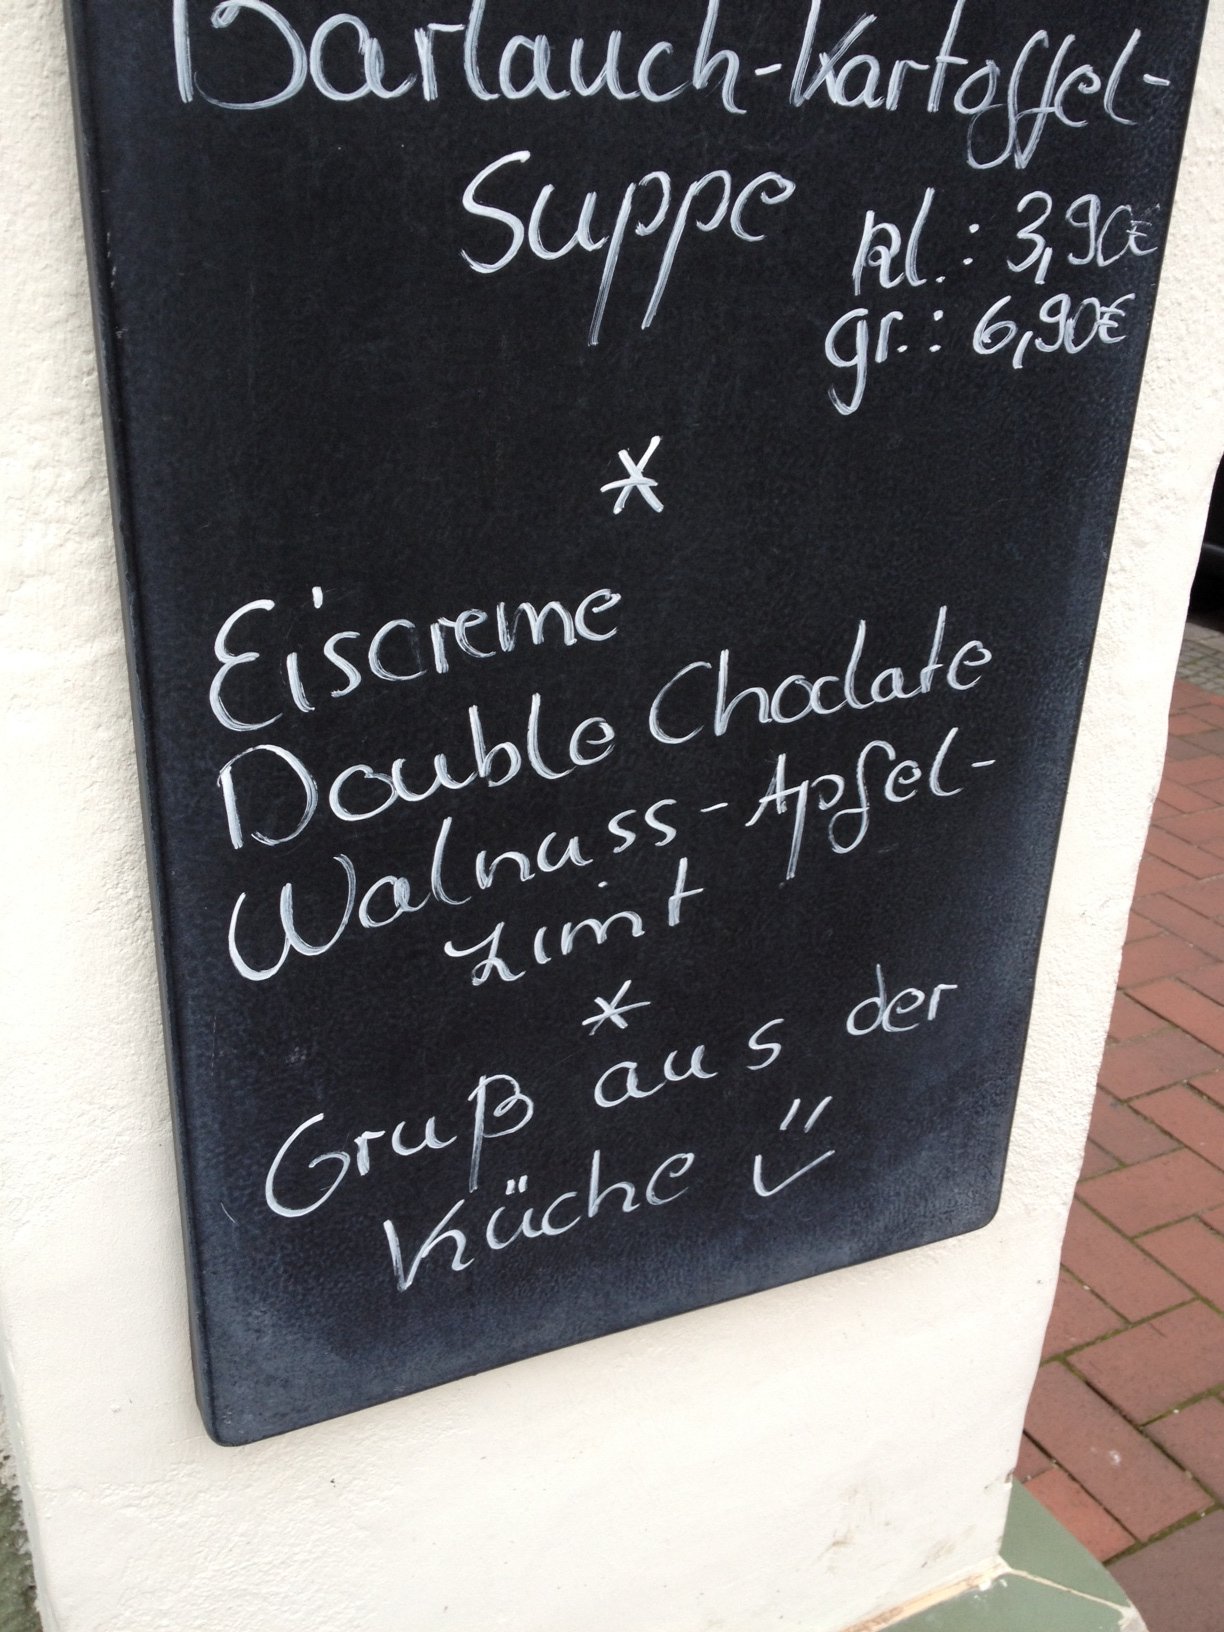 Bärlauch-Kartoffel-
Suppe
kl.: 3,90€
gr.: 6,90€
*
Eiscreme
Double Choclate
Walnuss-Apfel-
Zimt
*
Gruß aus der
Küche